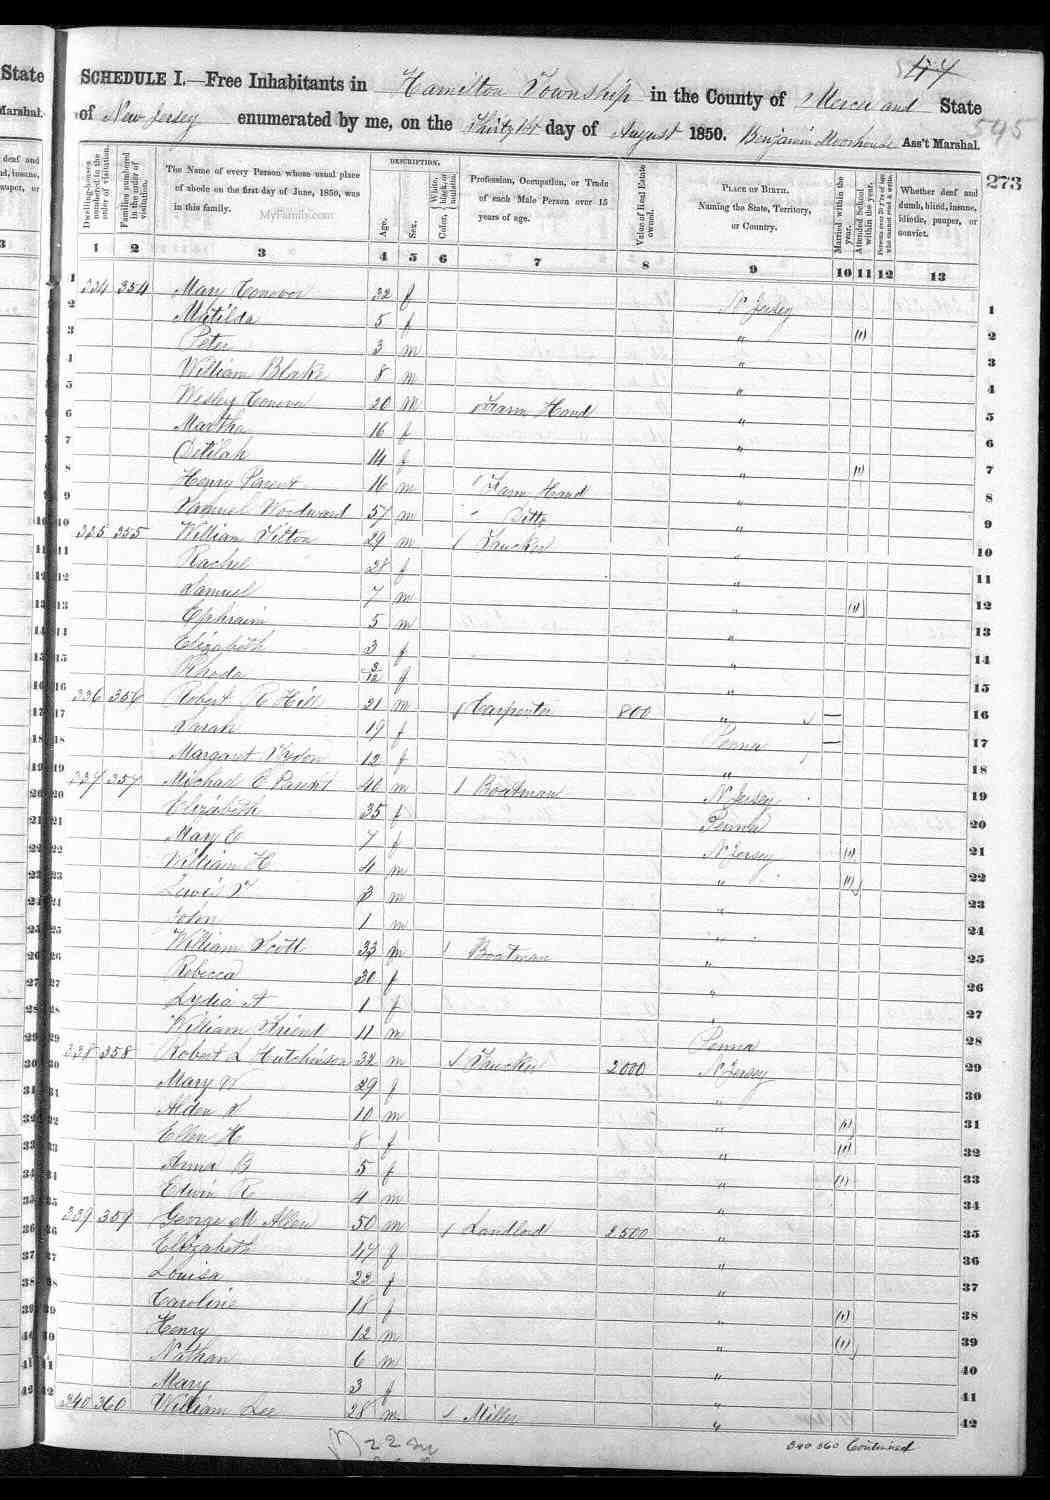 State
Marshal.
SCHEDULE I.—Free Inhabitants in Hamilton Township in the County of Mercer and State
of New Jersey enumerated by me, on the day of August 1850. Benjamin Moorhouse Ass't Marshal.
545
273
Dwelling-houses numbered in the order of visitation.
Families numbered in the order of visitation.
The Name of every Person whose usual place of abode on the first day of June, 1850, was in this family.
MyFamily.com
DESCRIPTION.
Age.
Sex.
Color, White, black, or mulatto.
Profession, Occupation, or Trade of each Male Person over 15 years of age.
Value of Real Estate owned.
PLACE OF BIRTH. Naming the State, Territory, or Country.
Married within the year.
Attended School within the year.
Persons over 20 y'rs of age who cannot read & write.
Whether deaf and dumb, blind, insane, idiotic, pauper, or convict.
1 2 3 4 5 6 7 8 9 10 11 12 13
1 334 354 Mary Conover 32 f N Jersey 1
2 Matilda 5 f " (1) 2
3 Peter 3 m " 3
4 William Blake 8 m " 4
5 Wesley Conover 20 M Farm Hand " 5
6 Martha 16 f " 6
7 Delilah 14 f " (1) 7
8 Henry Parent 16 m Farm Hand " 8
9 Samuel Woodward 57 m " Ditto " 9
10 335 355 William Tilton 29 m 1 Trucker " 10
11 Rachel 28 f " 11
12 Samuel 7 m " (1) 12
13 Ephraim 5 m " 13
14 Elizabeth 3 f " 14
15 Rhoda 3/12 f " 15
16 336 356 Robert R Hill 21 m Carpenter 800 " 16
17 Sarah 19 f Penna 17
18 Margaret 12 f " 18
19 337 357 Michael C Parent 40 m 1 Boatman N Jersey 19
20 Elizabeth 35 f Penna 20
21 Mary E 7 f N Jersey (1) 21
22 William H 4 m " (1) 22
23 Lewis T 3 m " 23
24 John 1 m " 24
25 William Scott 33 m 1 Boatman " 25
26 Rebecca 30 f " 26
27 Lydia A 1 f " 27
28 William Friend 11 m Penna 28
29 338 358 Robert L Hutchinson 32 m Trucker 2000 N Jersey 29
30 Mary W 29 f " 30
31 Alden T 10 m " (1) 31
32 Ellen H 8 f " (1) 32
33 Anna B 5 f " (1) 33
34 Edwin R 4 m " 34
35 339 359 George M Allen 50 m 1 Landlord 2500 " 35
36 Elizabeth 47 f " 36
37 Louisa 22 f " 37
38 Caroline 18 f " (1) 38
39 Henry 12 m " (1) 39
40 Nathan 6 m 40
41 Mary 3 f " 41
42 340 360 William Lee 28 m 1 Miller " 42
340 360 Continued
22 m